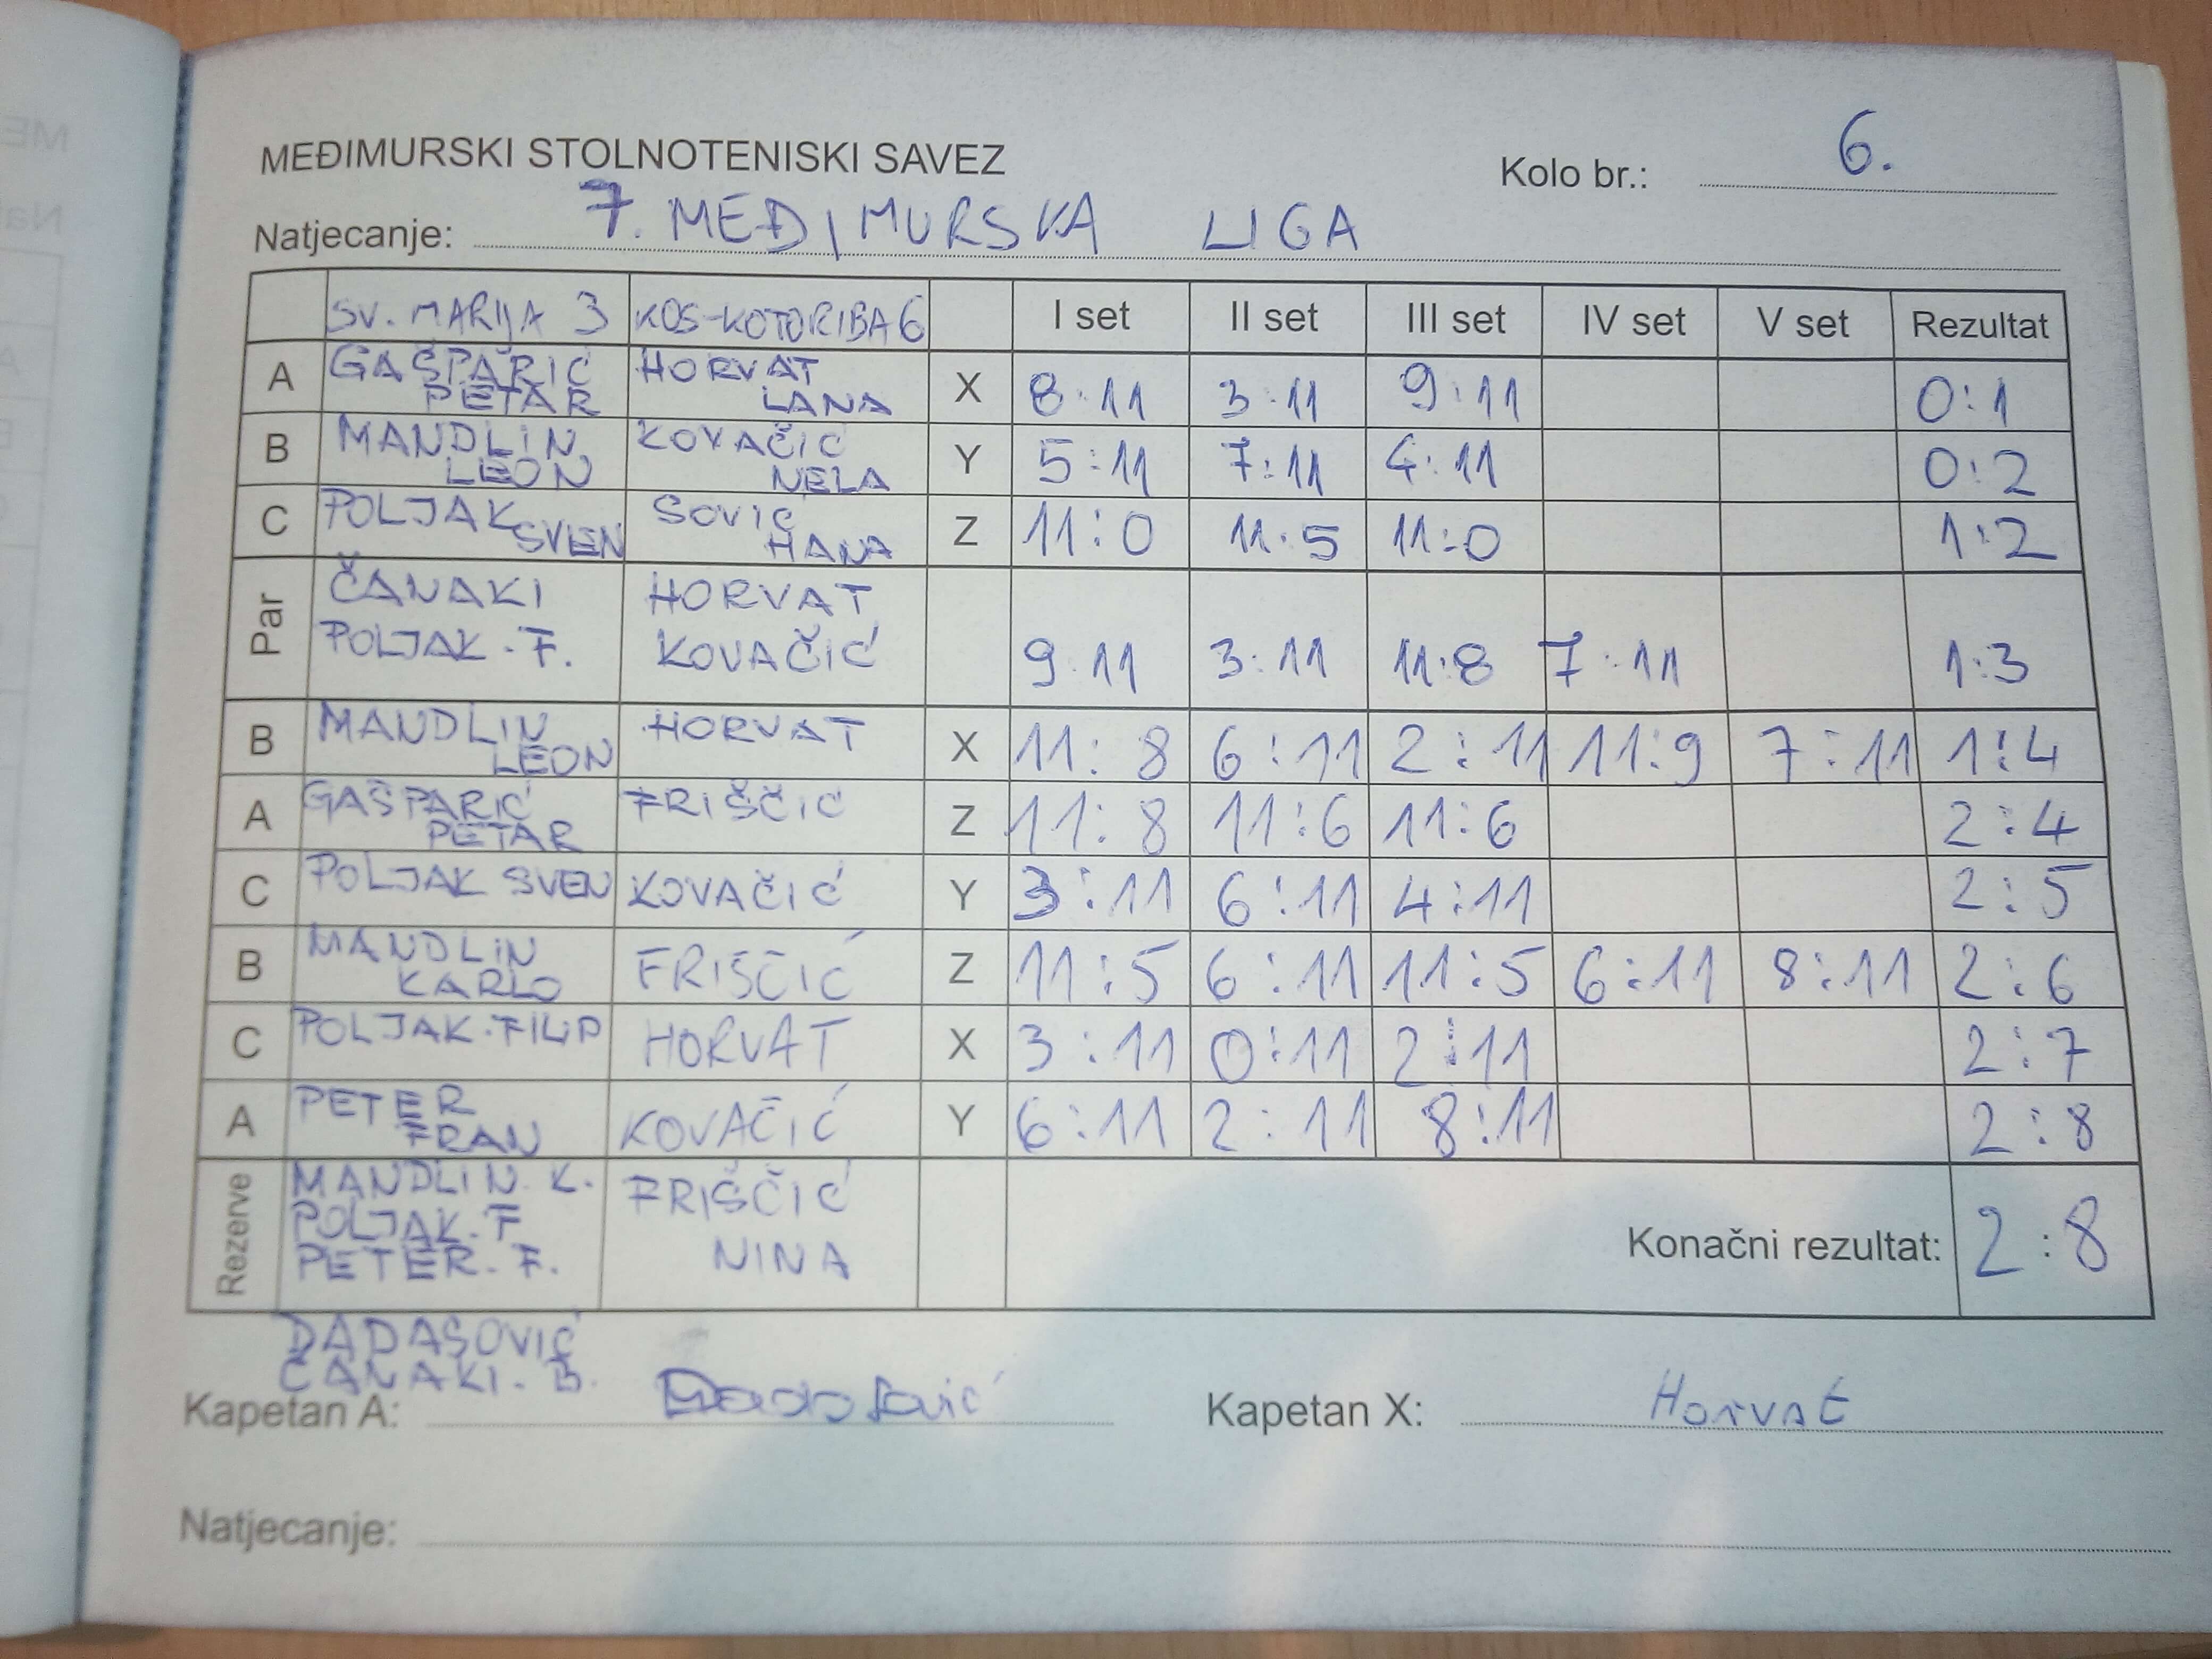 MEĐIMURSKI STOLNOTENISKI SAVEZ
Kolo br.: 6.
Natjecanje: 7. MEĐIMURSKA LIGA
SV. MARIJA 3 KOS-KOTORIBA 6 I set II set III set IV set V set Rezultat
A GAŠPARIĆ PETAR HORVAT LANA X 8:11 3:11 9:11 0:1
B MANDLIN LEON KOVAČIĆ NELA Y 5:11 7:11 4:11 0:2
C POLJAK SVEN SOVIC HANA Z 11:0 11:5 11:0 1:2
Par ČANAKI HORVAT
POLJAK.F. KOVAČIĆ 9:11 3:11 11:8 7:11 1:3
B MANDLIN LEON HORVAT X 11:8 6:11 2:11 11:9 7:11 1:4
A GAŠPARIĆ PETAR FRIŠČIĆ Z 11:8 11:6 11:6 2:4
C POLJAK SVEN KOVAČIĆ Y 3:11 6:11 4:11 2:5
B MANDLIN KARLO FRIŠČIĆ Z 11:5 6:11 11:5 6:11 8:11 2:6
C POLJAK.FILIP HORVAT X 3:11 0:11 2:11 2:7
A PETER FRAN KOVAČIĆ Y 6:11 2:11 8:11 2:8
Rezerve MANDLIN K. FRIŠČIĆ
POLJAK.F
PETER.F. NINA
Konačni rezultat: 2:8
DADASOVIĆ
ČANAKI.B.
Kapetan A: Kapetan X: Horvat
Natjecanje: